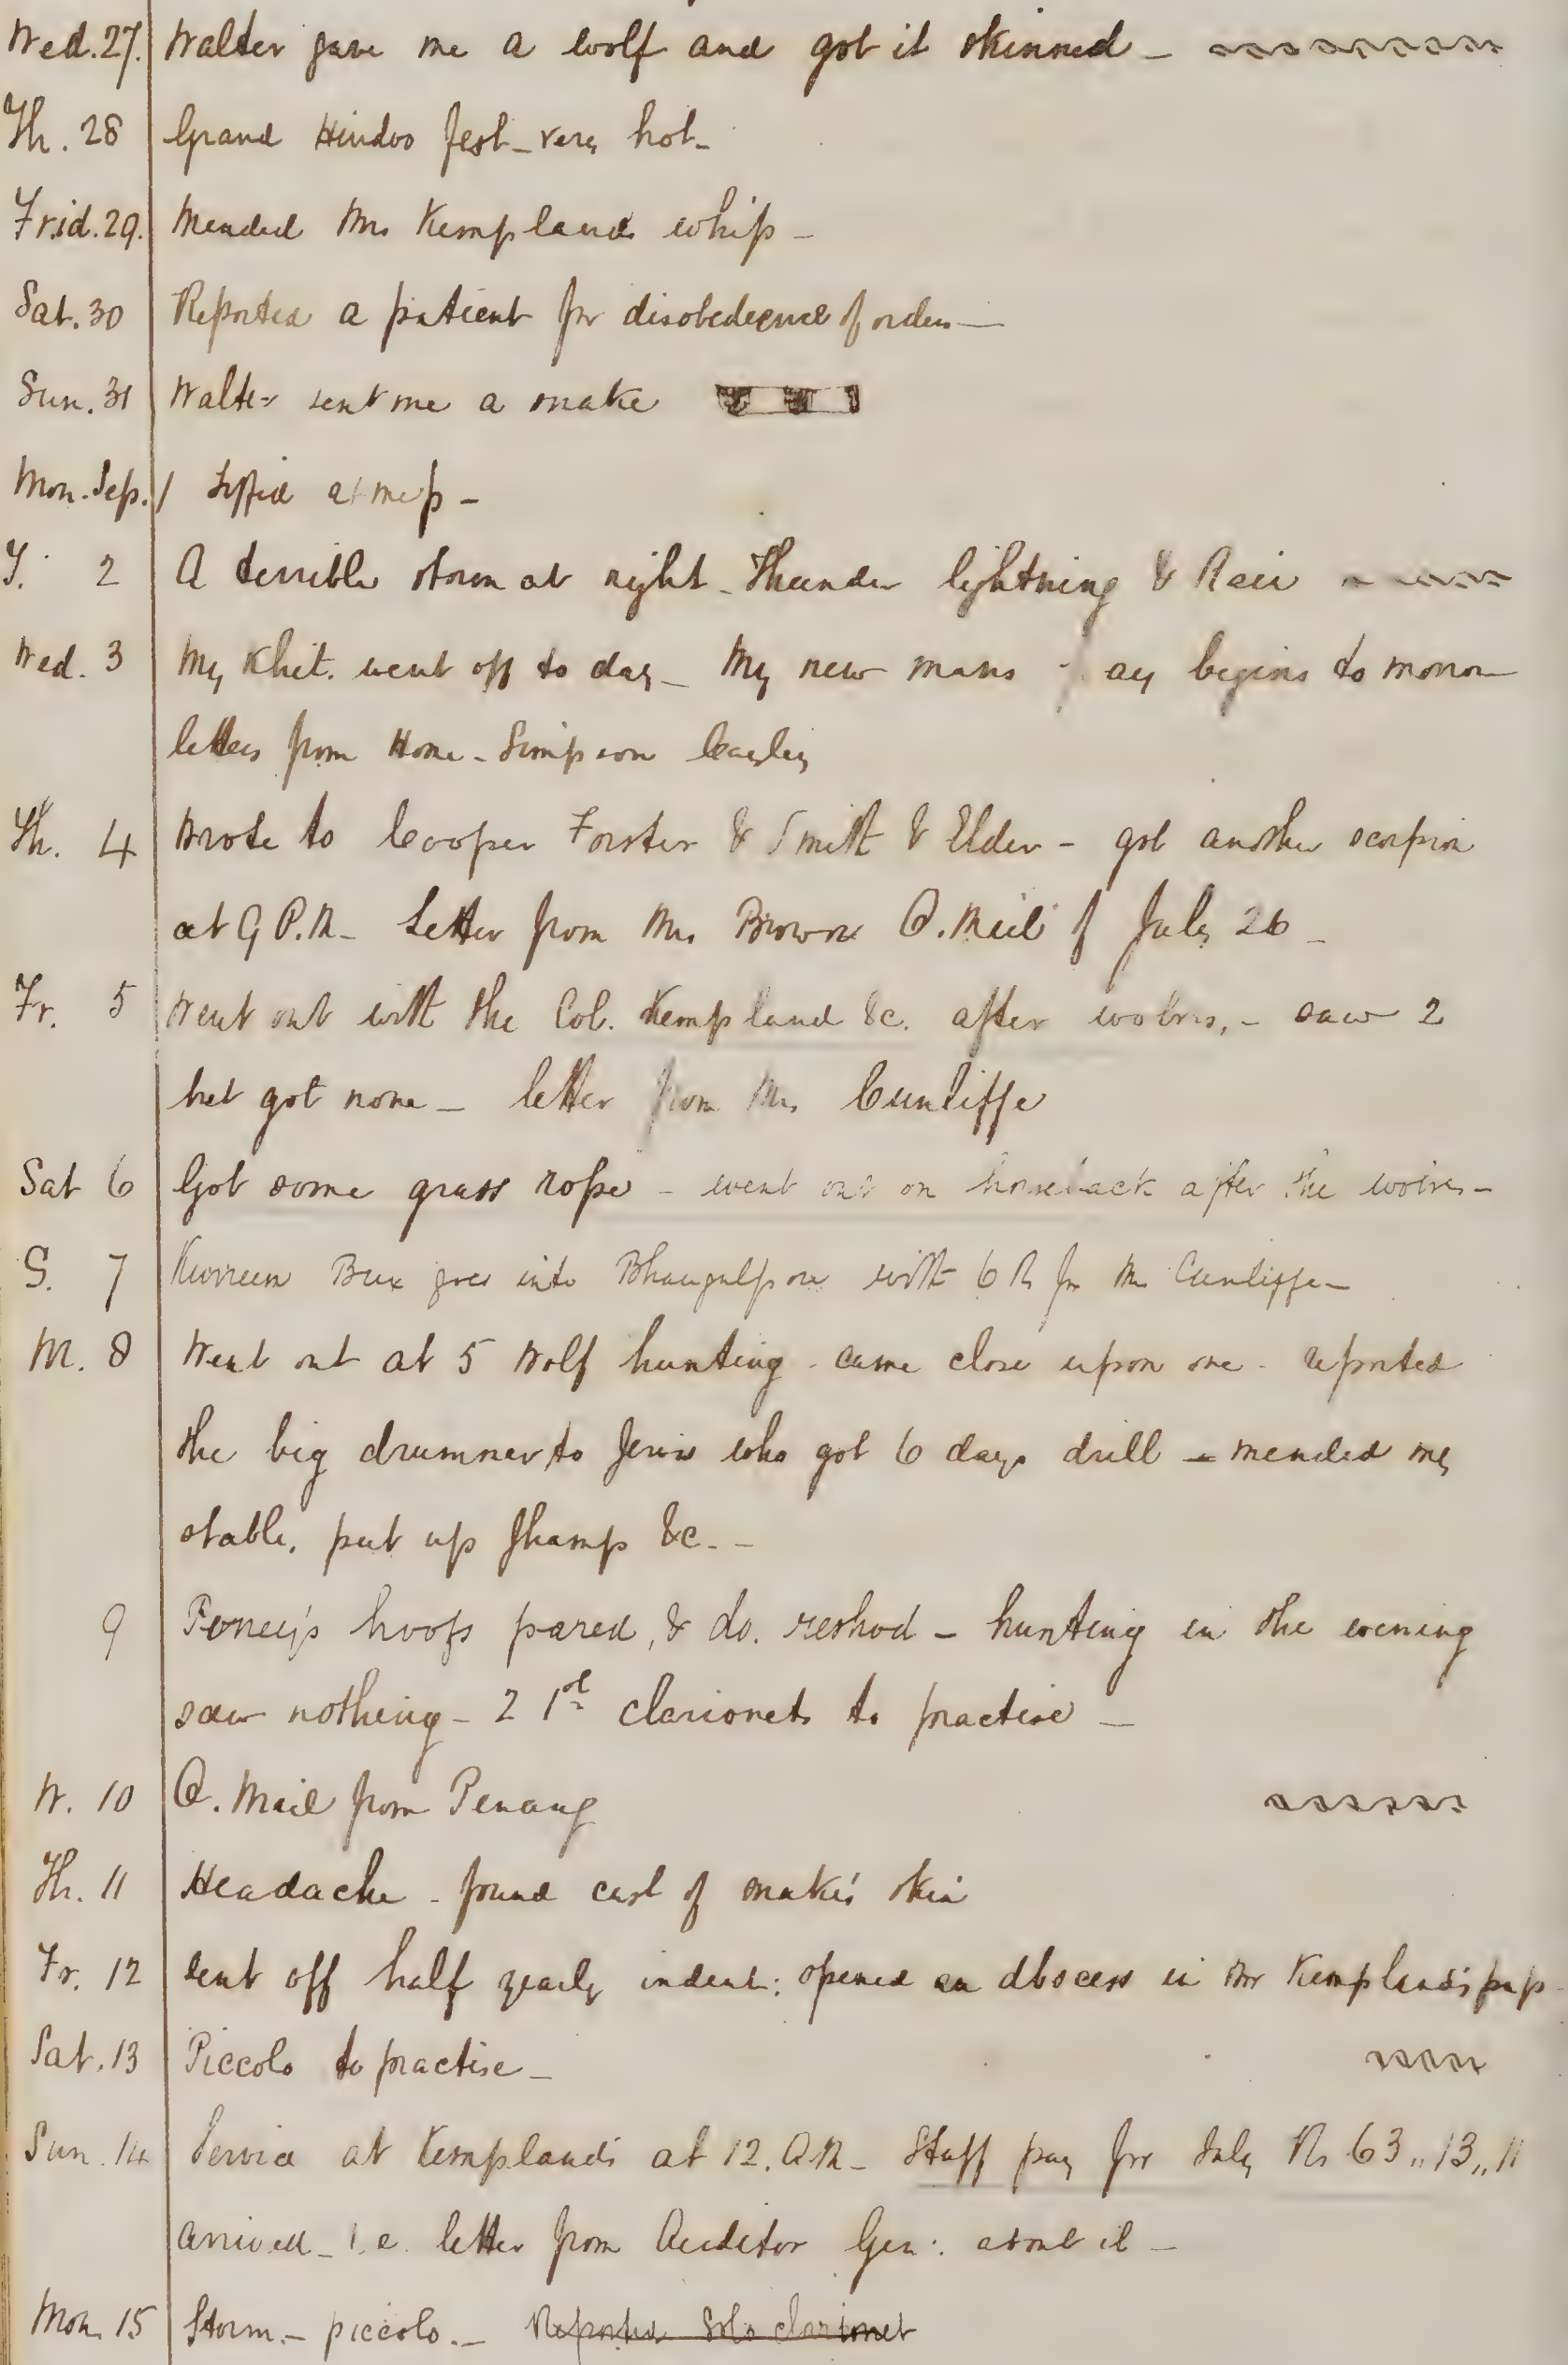 Wed. 27. Walter gave me a wolf and got it skinned -
Th. 28 Grand Hindoo fest - very hot -
Frid. 29. Mended Mrs Kemplands whip -
Sat. 30 Reported a patient for disobedience of orders -
Sun. 31 Walter sent me a snake
Mon. Sep. 1 Tiffed at mess -
T. 2 A terrible storm at night - Thunder lightning & Rain
Wed. 3 My Khit. went off to day - My new mans pay begins to morrow
letters from Home - Simpson
Th. 4 Wrote to Cooper Forster & Smith & Elder - got another scorpion
at 9 P.M - Letter from Mrs Browne O. Mail of July 26 -
Fr. 5 Went out with the Col. Kempland &c. after wolves, - saw 2
but got none - letter from Mrs Cunliffe
Sat 6 Got some grass rope - went out on horseback after the wolves -
S. 7 Kurreem Bux goes into Bhaugulpore with 6 Rs for Mrs Cunliffe -
M. 8 Went out at 5 Wolf hunting - came close upon one - reported
the big drummer to Jervis who got 6 days drill - mended my
stable, put up Jhamps &c. -
9 Poney's hoofs pared, & do. reshod - hunting in the evening
saw nothing - 2 1st clarionets to practise -
W. 10 O. Mail from Penang
Th. 11 Headache - found cast of snake's skin
Fr. 12 sent off half yearly indent: opened an abscess in Mr Kempland's pup -
Sat. 13 Piccolo to practise -
Sun. 14 Service at Kemplands at 12. A.M - Staff pay for July Rs 63,,13,,11
arrived - i.e. letter from Auditor Gen: about it -
Mon. 15 Storm. - piccolo. - Reported Solo clarionet